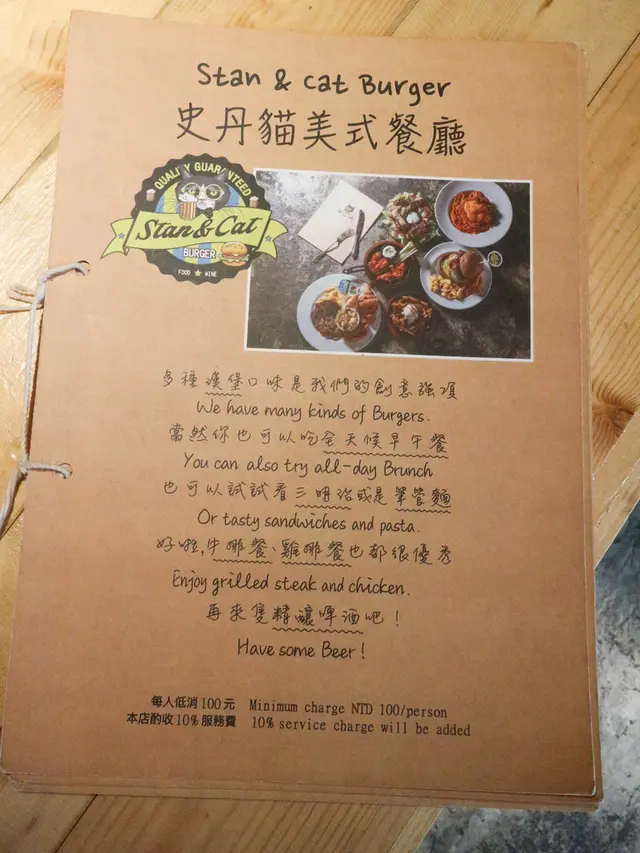 Stan & Cat Burger
史丹貓美式餐廳
QUALITY GUARANTEED
Stan & Cat
BURGER
FOOD ★ WINE
多種漢堡口味是我們的創意強項
We have many kinds of Burgers.
當然你也可以吃全天候早午餐
You can also try all-day Brunch
也可以試試看三明治或是筆管麵
Or tasty sandwiches and pasta.
好啦,牛排餐、雞排餐也都很優秀
Enjoy grilled steak and chicken.
再來隻精釀啤酒吧!
Have some Beer!
每人低消100元 Minimum charge NTD 100/person
本店酌收10%服務費 10% service charge will be added